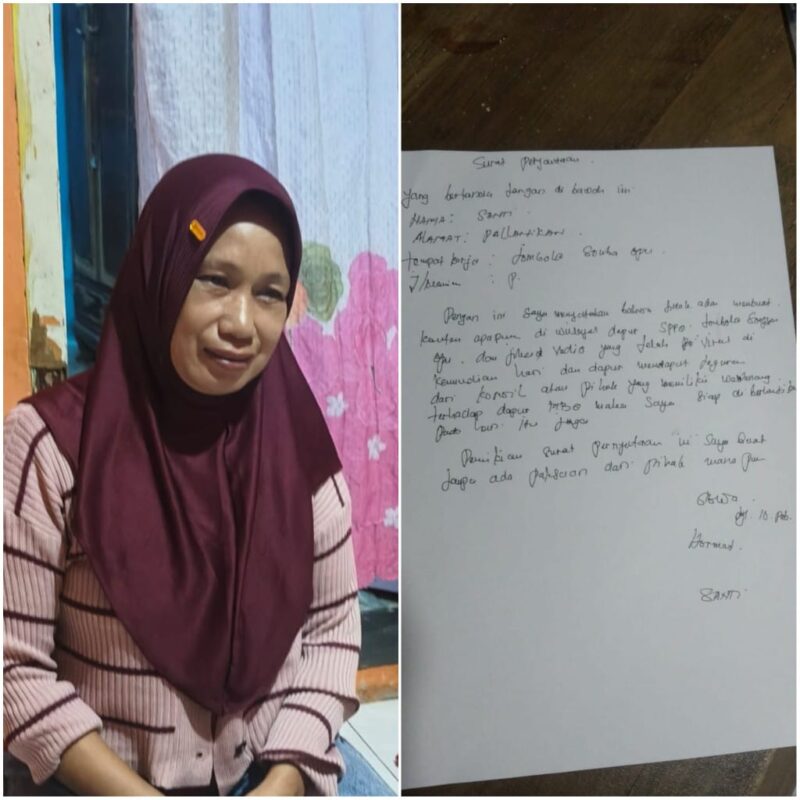 Surat Pernyataan.
Yang bertanda tangan di bawah ini
NAMA: SANTI
ALAMAT: PALLANTIKAN.
tempat kerja : Jombola Somba opu.
J/kelamin : P.
Dengan ini saya menyatakan bahwa tidak ada membuat
apapun di wilayah dapur SPPG. Somba
opu. dan Vidio yang telah di Virus di
kemudian hari dan dapur mendapat teguran
dari atau pihak yang memiliki wewenang
terhadap dapur MBG malam saya siap di
pada hari itu juga
Demikian surat pernyataan ini saya buat
tanpa ada paksaan dari pihak mana pun
GOWA
tgl. 10 feb.
Hormat.
SANTI